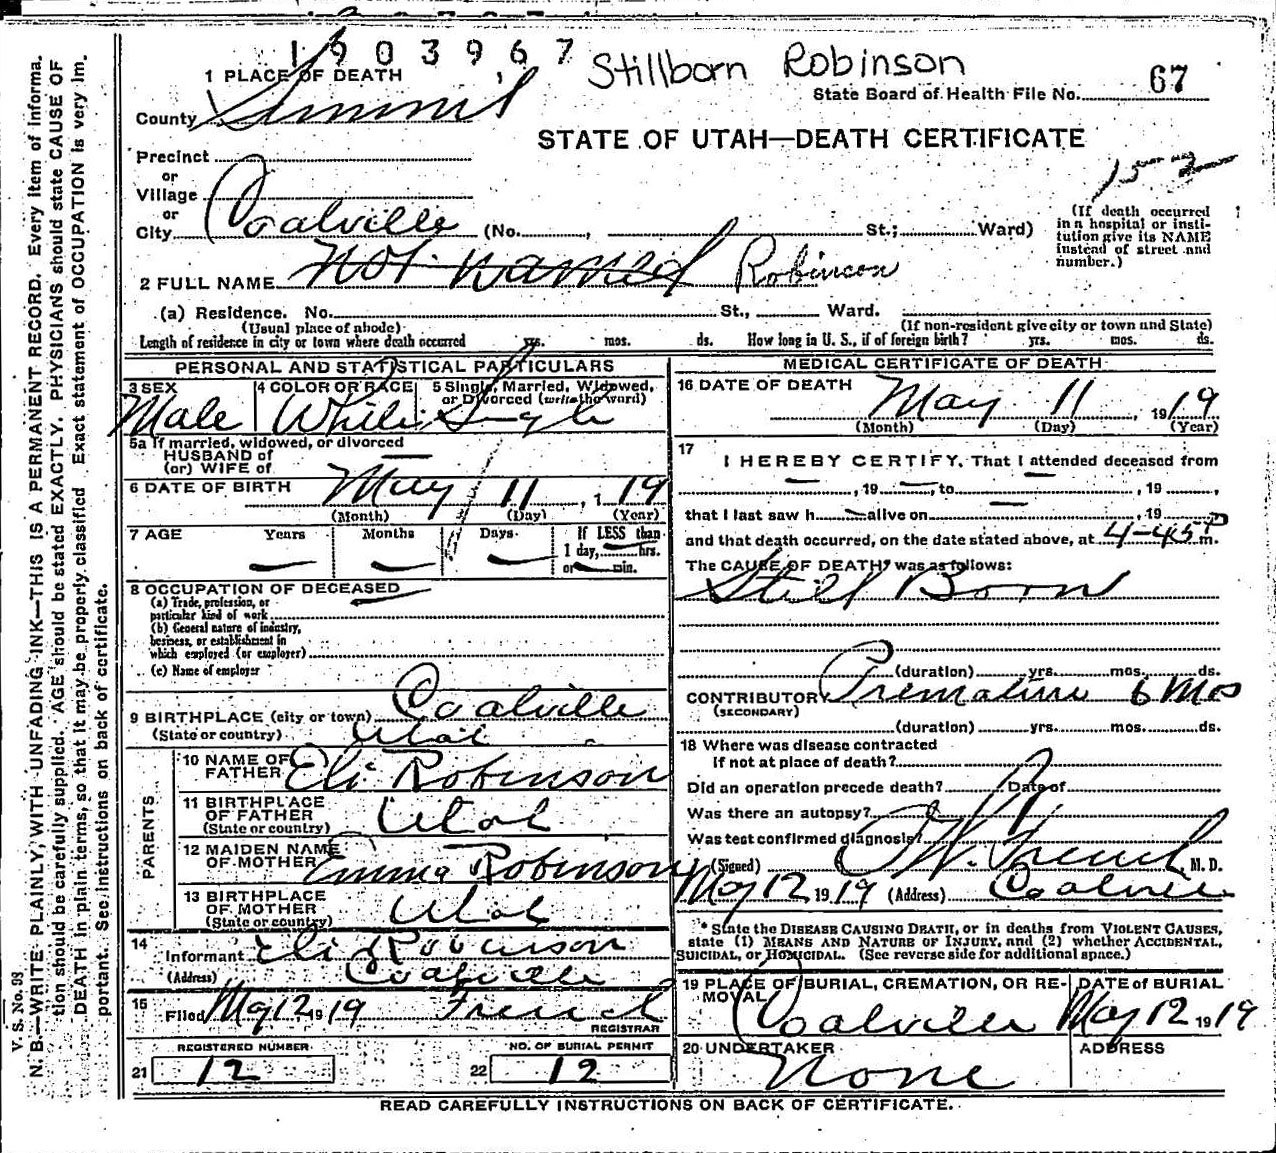 1903967
Stillborn Robinson
1 PLACE OF DEATH
State Board of Health File No. 67
County Summit
STATE OF UTAH—DEATH CERTIFICATE
Precinct
or
152
Village
or
City Coalville (No. , St.; Ward)
(If death occurred
in a hospital or insti-
tution give its NAME
instead of street and
number.)
2 FULL NAME Not named Robinson
(a) Residence. No. St., Ward.
(Usual place of abode)
(If non-resident give city or town and State)
Length of residence in city or town where death occurred yrs. mos. ds. How long in U. S., if of foreign birth? yrs. mos. ds.
PERSONAL AND STATISTICAL PARTICULARS
3 SEX
Male
4 COLOR OR RACE
White
5 Single, Married, Widowed,
or Divorced (write the word)
Single
5a If married, widowed, or divorced
HUSBAND OF
(or) WIFE OF
6 DATE OF BIRTH May 11, 1919
(Month) (Day) (Year)
7 AGE Years Months Days If LESS than
1 day, hrs.
or min.
8 OCCUPATION OF DECEASED
(a) Trade, profession, or
particular kind of work
(b) General nature of industry,
business, or establishment in
which employed (or employer)
(c) Name of employer
9 BIRTHPLACE (city or town) Coalville
(State or country) Utah
PARENTS
10 NAME OF
FATHER Eli Robinson
11 BIRTHPLACE
OF FATHER
(State or country) Utah
12 MAIDEN NAME
OF MOTHER Emma Robinson
13 BIRTHPLACE
OF MOTHER
(State or country) Utah
14
Informant Eli Robinson
(Address) Coalville
15
Filed May 12 1919 French
REGISTRAR
REGISTERED NUMBER
21 12
NO. OF BURIAL PERMIT
22 12
MEDICAL CERTIFICATE OF DEATH
16 DATE OF DEATH
May 11, 1919
(Month) (Day) (Year)
17
I HEREBY CERTIFY, That I attended deceased from
, 19 , to , 19 ,
that I last saw h alive on , 19
and that death occurred, on the date stated above, at 4-45 P m.
The CAUSE OF DEATH* was as follows:
Still Born
(duration) yrs. mos. ds.
CONTRIBUTORY Premature 6 Mos
(SECONDARY)
(duration) yrs. mos. ds.
18 Where was disease contracted
If not at place of death?
Did an operation precede death? Date of
Was there an autopsy?
Was test confirmed diagnosis?
(Signed) W. French M. D.
May 12 1919 (Address) Coalville
* State the DISEASE CAUSING DEATH, or in deaths from VIOLENT CAUSES,
state (1) MEANS AND NATURE OF INJURY, and (2) whether ACCIDENTAL,
SUICIDAL, or HOMICIDAL. (See reverse side for additional space.)
19 PLACE OF BURIAL, CREMATION, OR RE-
MOVAL
Coalville
DATE of BURIAL
May 12 1919
20 UNDERTAKER
None
ADDRESS
READ CAREFULLY INSTRUCTIONS ON BACK OF CERTIFICATE.
V. S. No. 98
N. B.—WRITE PLAINLY, WITH UNFADING INK—THIS IS A PERMANENT RECORD. Every item of informa-
tion should be carefully supplied. AGE should be stated EXACTLY. PHYSICIANS should state CAUSE OF
DEATH in plain terms, so that it may be properly classified. Exact statement of OCCUPATION is very im-
portant. See instructions on back of certificate.